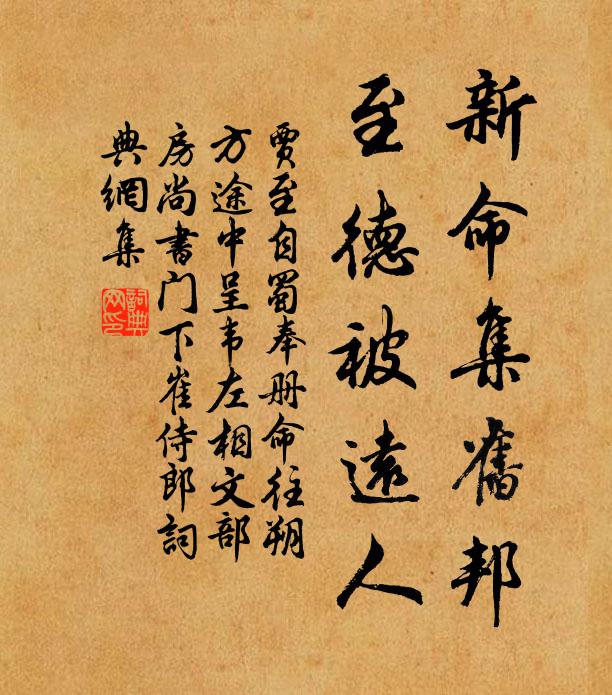 新命集舊邦
至德被遠人
賈至自蜀奉册命往朔
方途中呈韦左相文部
房尚書门下崔侍郎詞
典網集
詞典
网印